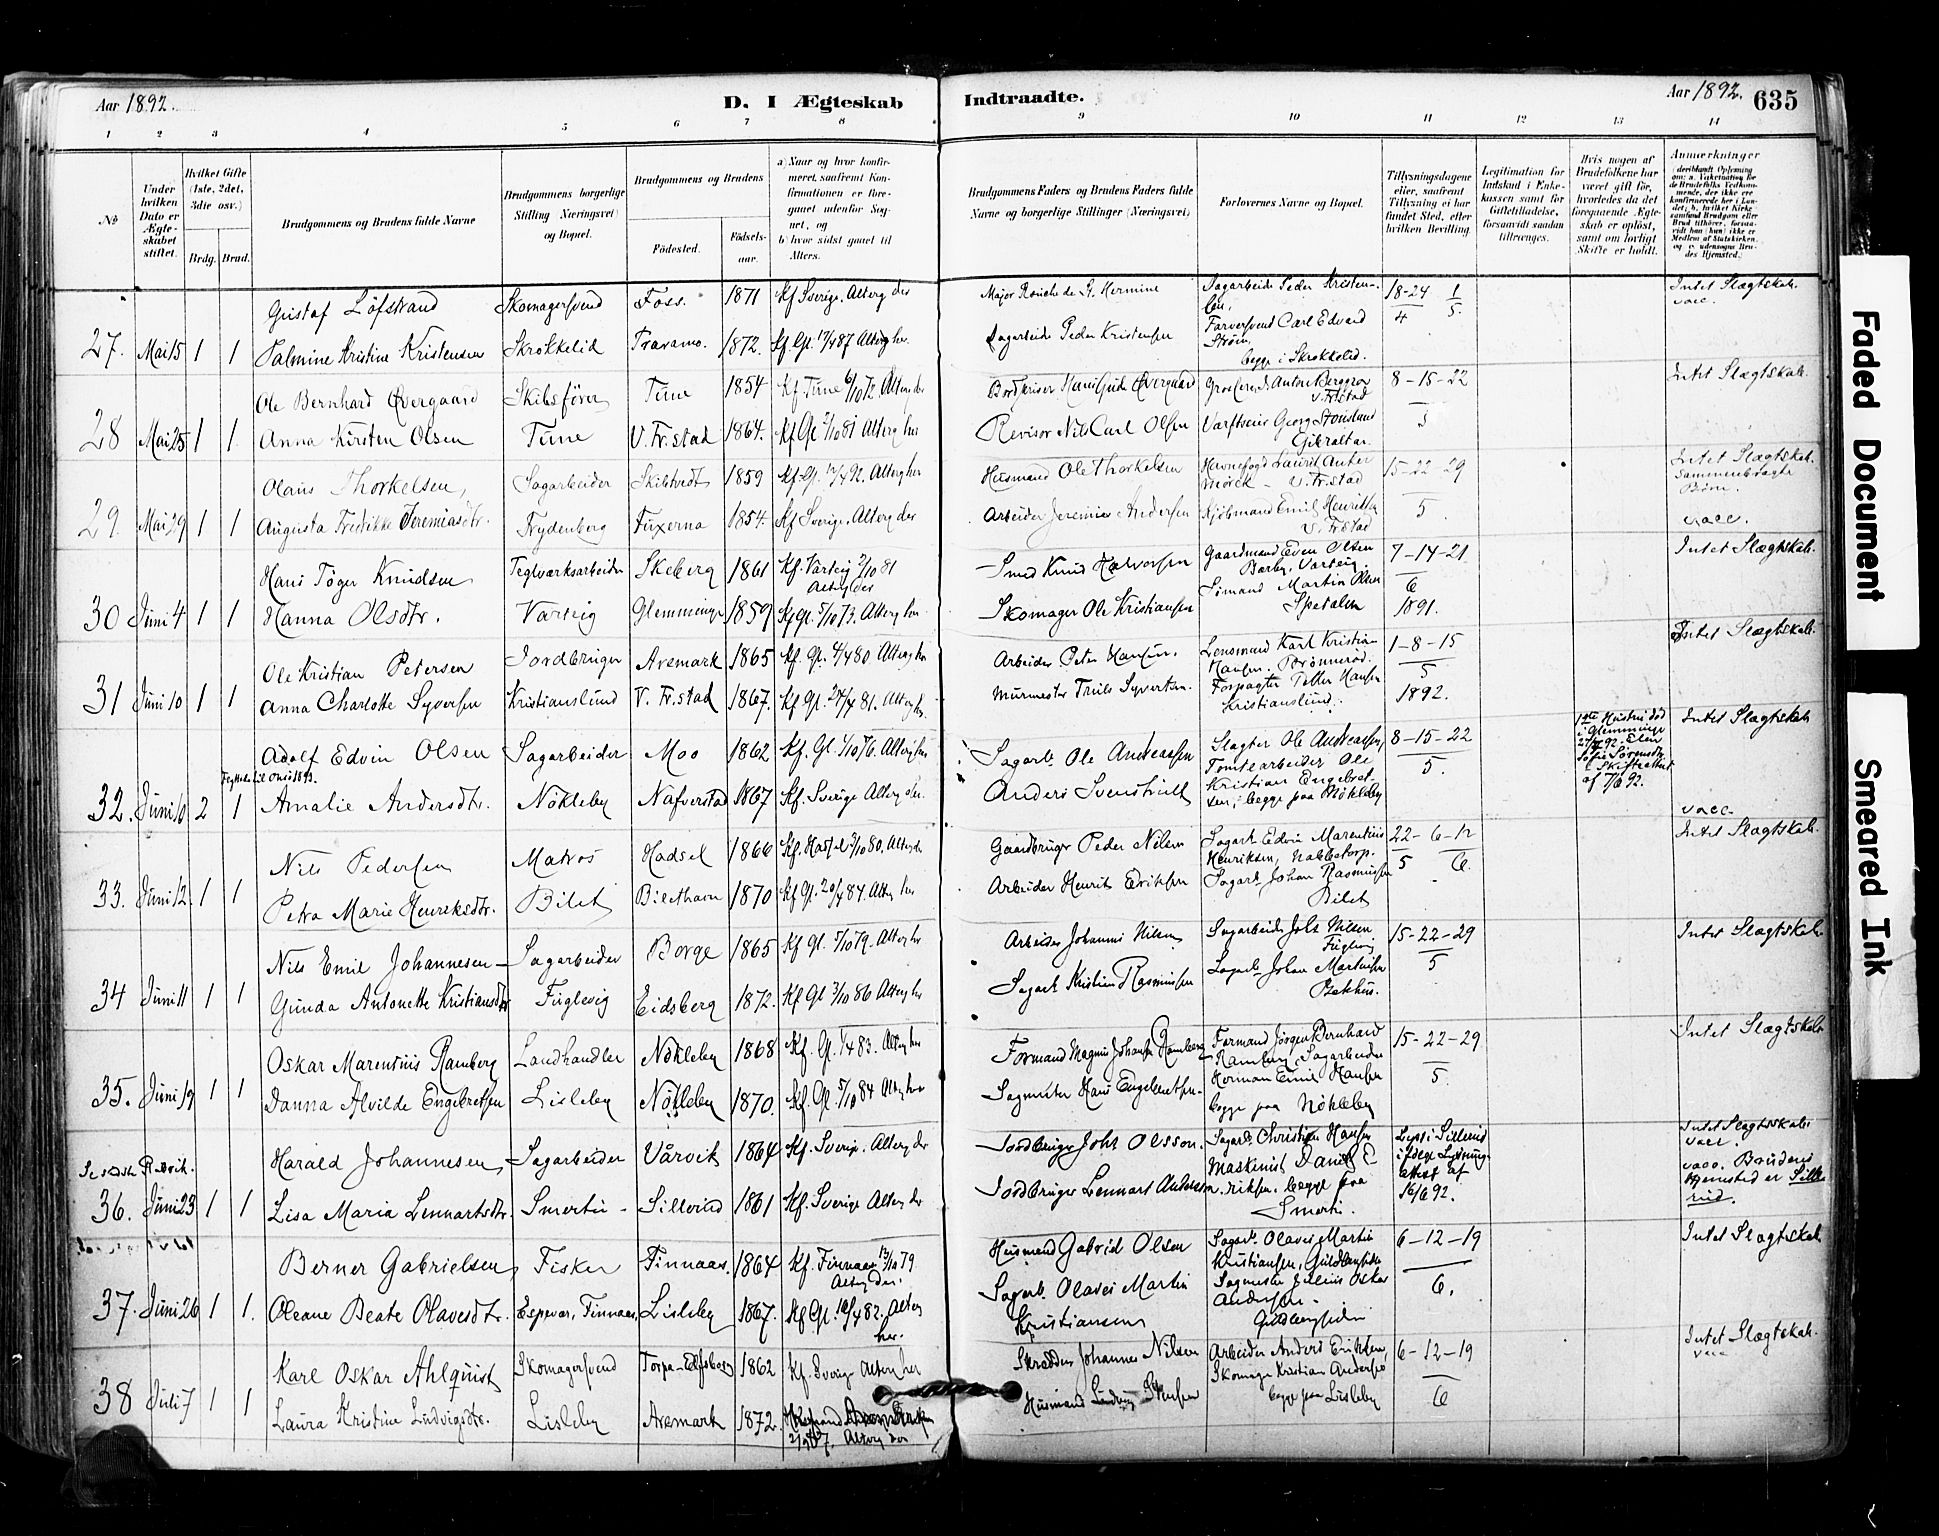 Aar 1892.
D. I Ægteskab Indtraadte.
Aar 1892. 635
1 2 3 4 5 6 7 8 9 10 11 12 13 14
№
Under hvilken Dato er Ægteskabet stiftet.
Hvilket Gifte (1ste, 2det, 3die osv.)
Brdg. Brud.
Brudgommens og Brudens fulde Navne
Brudgommens borgerlige Stilling (Næringsvei) og Bopæl.
Brudgommens og Brudens
Fødested. Fødselsaar.
a) Naar og hvor konfirmeret, saafremt Konfirmationen er foregaaet udenfor Sognet, og
b) hvor sidst gaaet til Alters.
Brudgommens Faders og Brudens Faders fulde Navne og borgerlige Stillinger (Næringsvei)
Forlovernes Navne og Bopæl.
Tillysningsdagene eller, saafremt Tillysning ei har fundet Sted, efter hvilken Bevilling.
Legitimation for Indskud i Enkekassen samt for Giftetilladelse, forsaavidt saadan tiltrænges.
Hvis nogen af Brudefolkene har været gift før, hvorledes da det foregaaende Ægteskab er opløst, samt om lovligt Skifte er holdt.
Anmerkninger
Gustaf Löfstrand Skomagersvend Foss. 1871 Kf Sverige. Alterg der
Sagarbeider Peder Kristensen, 18-24 1
4 5.
Intet Slægtskab.
vacc.
27. Mai 15 1 1 Palmine Kristine Kristensen Skrokkelid 1872. Kf. Gl. Alterg her.
Sagarbeider Peder Kristensen
Farversvend Carl Edvard Strøm,
begge i Skrokkelid.
Ole Bernhard Øvergaard Skibsfører Tune 1854 Kf Tune 6/10 72. Alterg der
8-15-22
5
Intet Slægtskab.
28 Mai 25 1 1 Anna Kirsten Olsen Tune V. Fr.stad 1864. Kf Gl 2/10 81 Alterg her
Revisor Nils Carl Olsen
Gibraltar.
Olaus Thorkelsen, Sagarbeider Skibtvedt 1859 Alterg her
Husmand Ole Thorkelsen
V. Fr.stad
15-22-29
5
Intet Slægtskab.
Sammenbragte
Børn.
29. Mai 29 1 1 Augusta Fredrikke Jeremiasdtr. Frydenberg Fuxerna 1854. Kf Sverige, Alterg der
Arbeider Jeremias Andersen
V. Frstad
vacc.
Hans Töger Knudsen Teglværksarbeider Skeberg 1861 Kf. Varteig 2/10 81
Alterg der
Smed Knud Halvorsen Gaardmand Even Olsen
Varteig.
7-14-21
6
1891.
Intet Slægtskab.
30 Juni 4 1 1 Hanna Olsdtr. Varteig Glemminge 1859 Kf Gl. 5/10 73. Alterg her
Skomager Ole Kristiansen Sömand Martin Olsen
Spetalen
Ole Kristian Petersen Jordbruger Aremark 1865 Kf. Gl. 4/4 80 Alterg her
Arbeider Peter Hansen. Lensmand Karl Kristian Hansen.
1-8-15
5
1892.
Intet Slægtskab.
31 Juni 10 1 1 Anna Charlotte Syversen Kristianslund V. Fr.stad 1867. Kf Gl. 24/4 81. Alterg her.
Murmester Truls Syvertsen. Forpagter Petter Hansen
Kristianslund.
Adolf Edvin Olsen Sagarbeider Moo 1862 Kf. Gl 1/10 76. Alterg her
Sagarb. Ole Andreassen Slagter Ole Andreassen,
8-15-22
5.
1ste Hustru död
i Glemminge
Skifteattest
af 7/6 92.
Intet Slægtskab
32. Juni 10 2 1 Amalie Andersdtr. Nökleby Nafverstad 1867 Kf. Sverige Alterg her.
Tomtearbeider Ole
Kristian Engebretsen, begge paa Nökleby
vacc.
Nils Pedersen Matros Hadsel 1866 Alterg der
Gaardbruger Peder Nilsen Sagarb Edvin Marentius
Henriksen, Nabbetorp.
22-6-12
5 6.
Intet Slægtskab.
33. Juni 12 1 1 Petra Marie Henriksdtr. Bilet 1870 Kf Gl. 20/4 84. Alterg her
Arbeider Henrik Eriksen Sagarb. Johan Rasmussen
Bilet
Nils Emil Johannesen Sagarbeider Borge 1865 Kf Gl. 5/10 79. Alterg her
Arbeider Johannes Nilsen Sagarbeider Johs Nilsen
Fuglevig
15-22-29
5
Intet Slægtskab
34 Juni 11 1 1 Gunda Antonette Kristiansdtr Fuglevig Eidsberg 1872. Kf Gl 3/10 86 Alterg her
Sagarb Kristian Rasmussen Sagarb. Johan Martinsen
Bakhus.
Oskar Marentius Ramberg Landhandler Nökleby 1868 Kf. Gl. 83. Alterg her
Formand Magnus Johansen Ramberg Formand Jörgen Bernhard
Ramberg, Sagarbeider
15-22-29
5.
Intet Slægtskab
35. Juni 19 1 1 Danna Alvilde Engebretsen Lisleby Nökleby 1870. Kf. Gl 5/10 84 Alterg her
Sagmester Hans Engebretsen. Herman Emil Hansen
begge paa Nökleby
Harald Johannesen Sagarbeider Vårvik 1864 Kf. Sverige. Alterg der
Jordbruger Johs Olsson. Sagarb. Christian Hansen
Lyst i Sillerud
ifölge Lysningsattest af
16/6 92.
Intet Slægtskab
vacc.
36. Juni 23 1 1 Lisa Maria Lennartsdtr. Smertu Sillerud 1861 Kf. Sverige Alterg der
Jordbruger Lennart Andersson. Maskinist Daniel Eriksen. begge paa
Smertu.
vacc. Brudens
Hjemsted er Sillerud.
Berner Gabrielsen Fisker Finnaas. 1864 Kf. Finnaas 12/10 79
Alterg der.
Husmand Gabriel Olsen Sagarb. Olaves Martin
Kristiansen,
6-12-19
6.
Intet Slægtskab
37. Juni 26 1 1. Oleane Beate Olavesdtr. Espevær, Finnaas, Lisleby 1867. Kf Gl. 16/4 82. Alterg
her.
Sagarb. Olaves Martin
Kristiansen
Sagmester Julius Oskar
Andersen
Karl Oskar Ahlquist Skomagersvend Torpa-Elfsborg 1862 Kf. Sverige Alterg her
Skrædder Johannes Nilsen Arbeider Anders Eriksen
6-12-19
6
Intet Slægtskab.
vacc
38 Juli 7 1 1 Laura Kristine Ludvigsdtr. Lisleby Aremark 1872. Alterg der
Husmand Ludvig Skomager Kristian Andersen
begge paa Lisleby
Faded Document
Smeared Ink